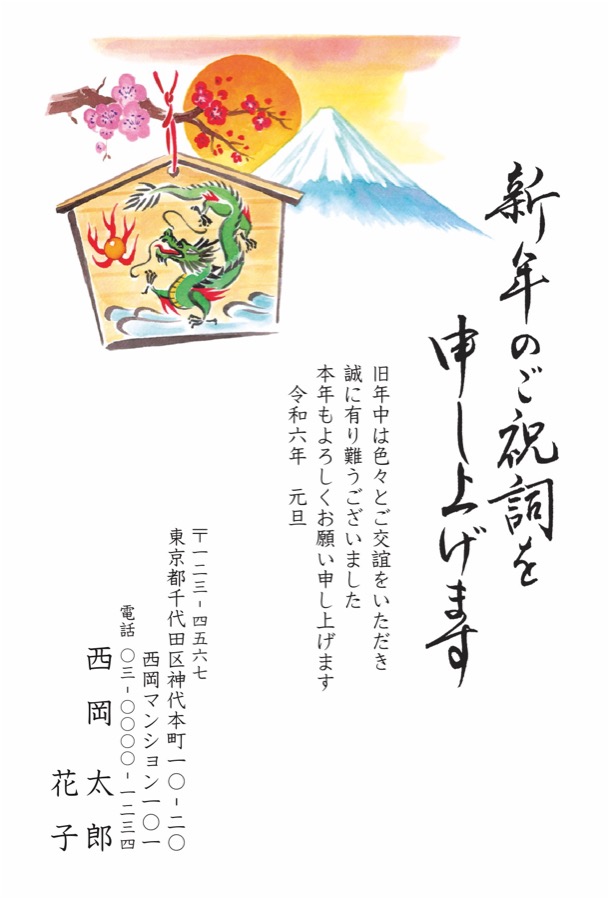 新年のご祝詞を
申し上げます
旧年中は色々とご交誼をいただき
誠に有り難うございました
本年もよろしくお願い申し上げます
令和六年　元旦
〒一二三-四五六七
東京都千代田区神代本町一〇-二〇
西岡マンション一〇一
電話 〇三-〇〇〇〇-一二三四
西岡　太郎
花子